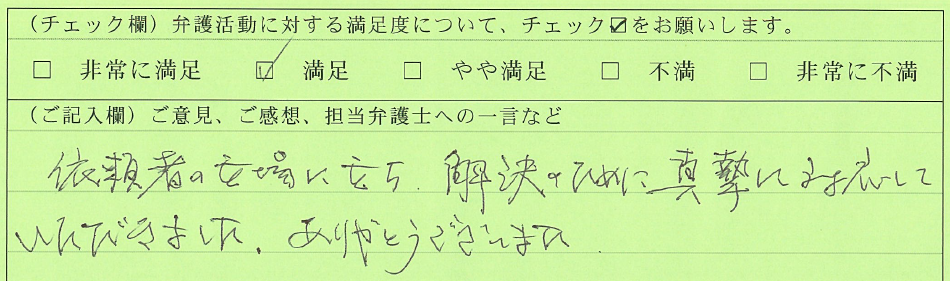 (チェック欄)弁護活動に対する満足度について、チェック☑をお願いします。
□ 非常に満足 ☑ 満足 □ やや満足 □ 不満 □ 非常に不満
(ご記入欄)ご意見、ご感想、担当弁護士への一言など
依頼者の立場に立ち、解決のために真摯に対応して
いただきました。ありがとうございました